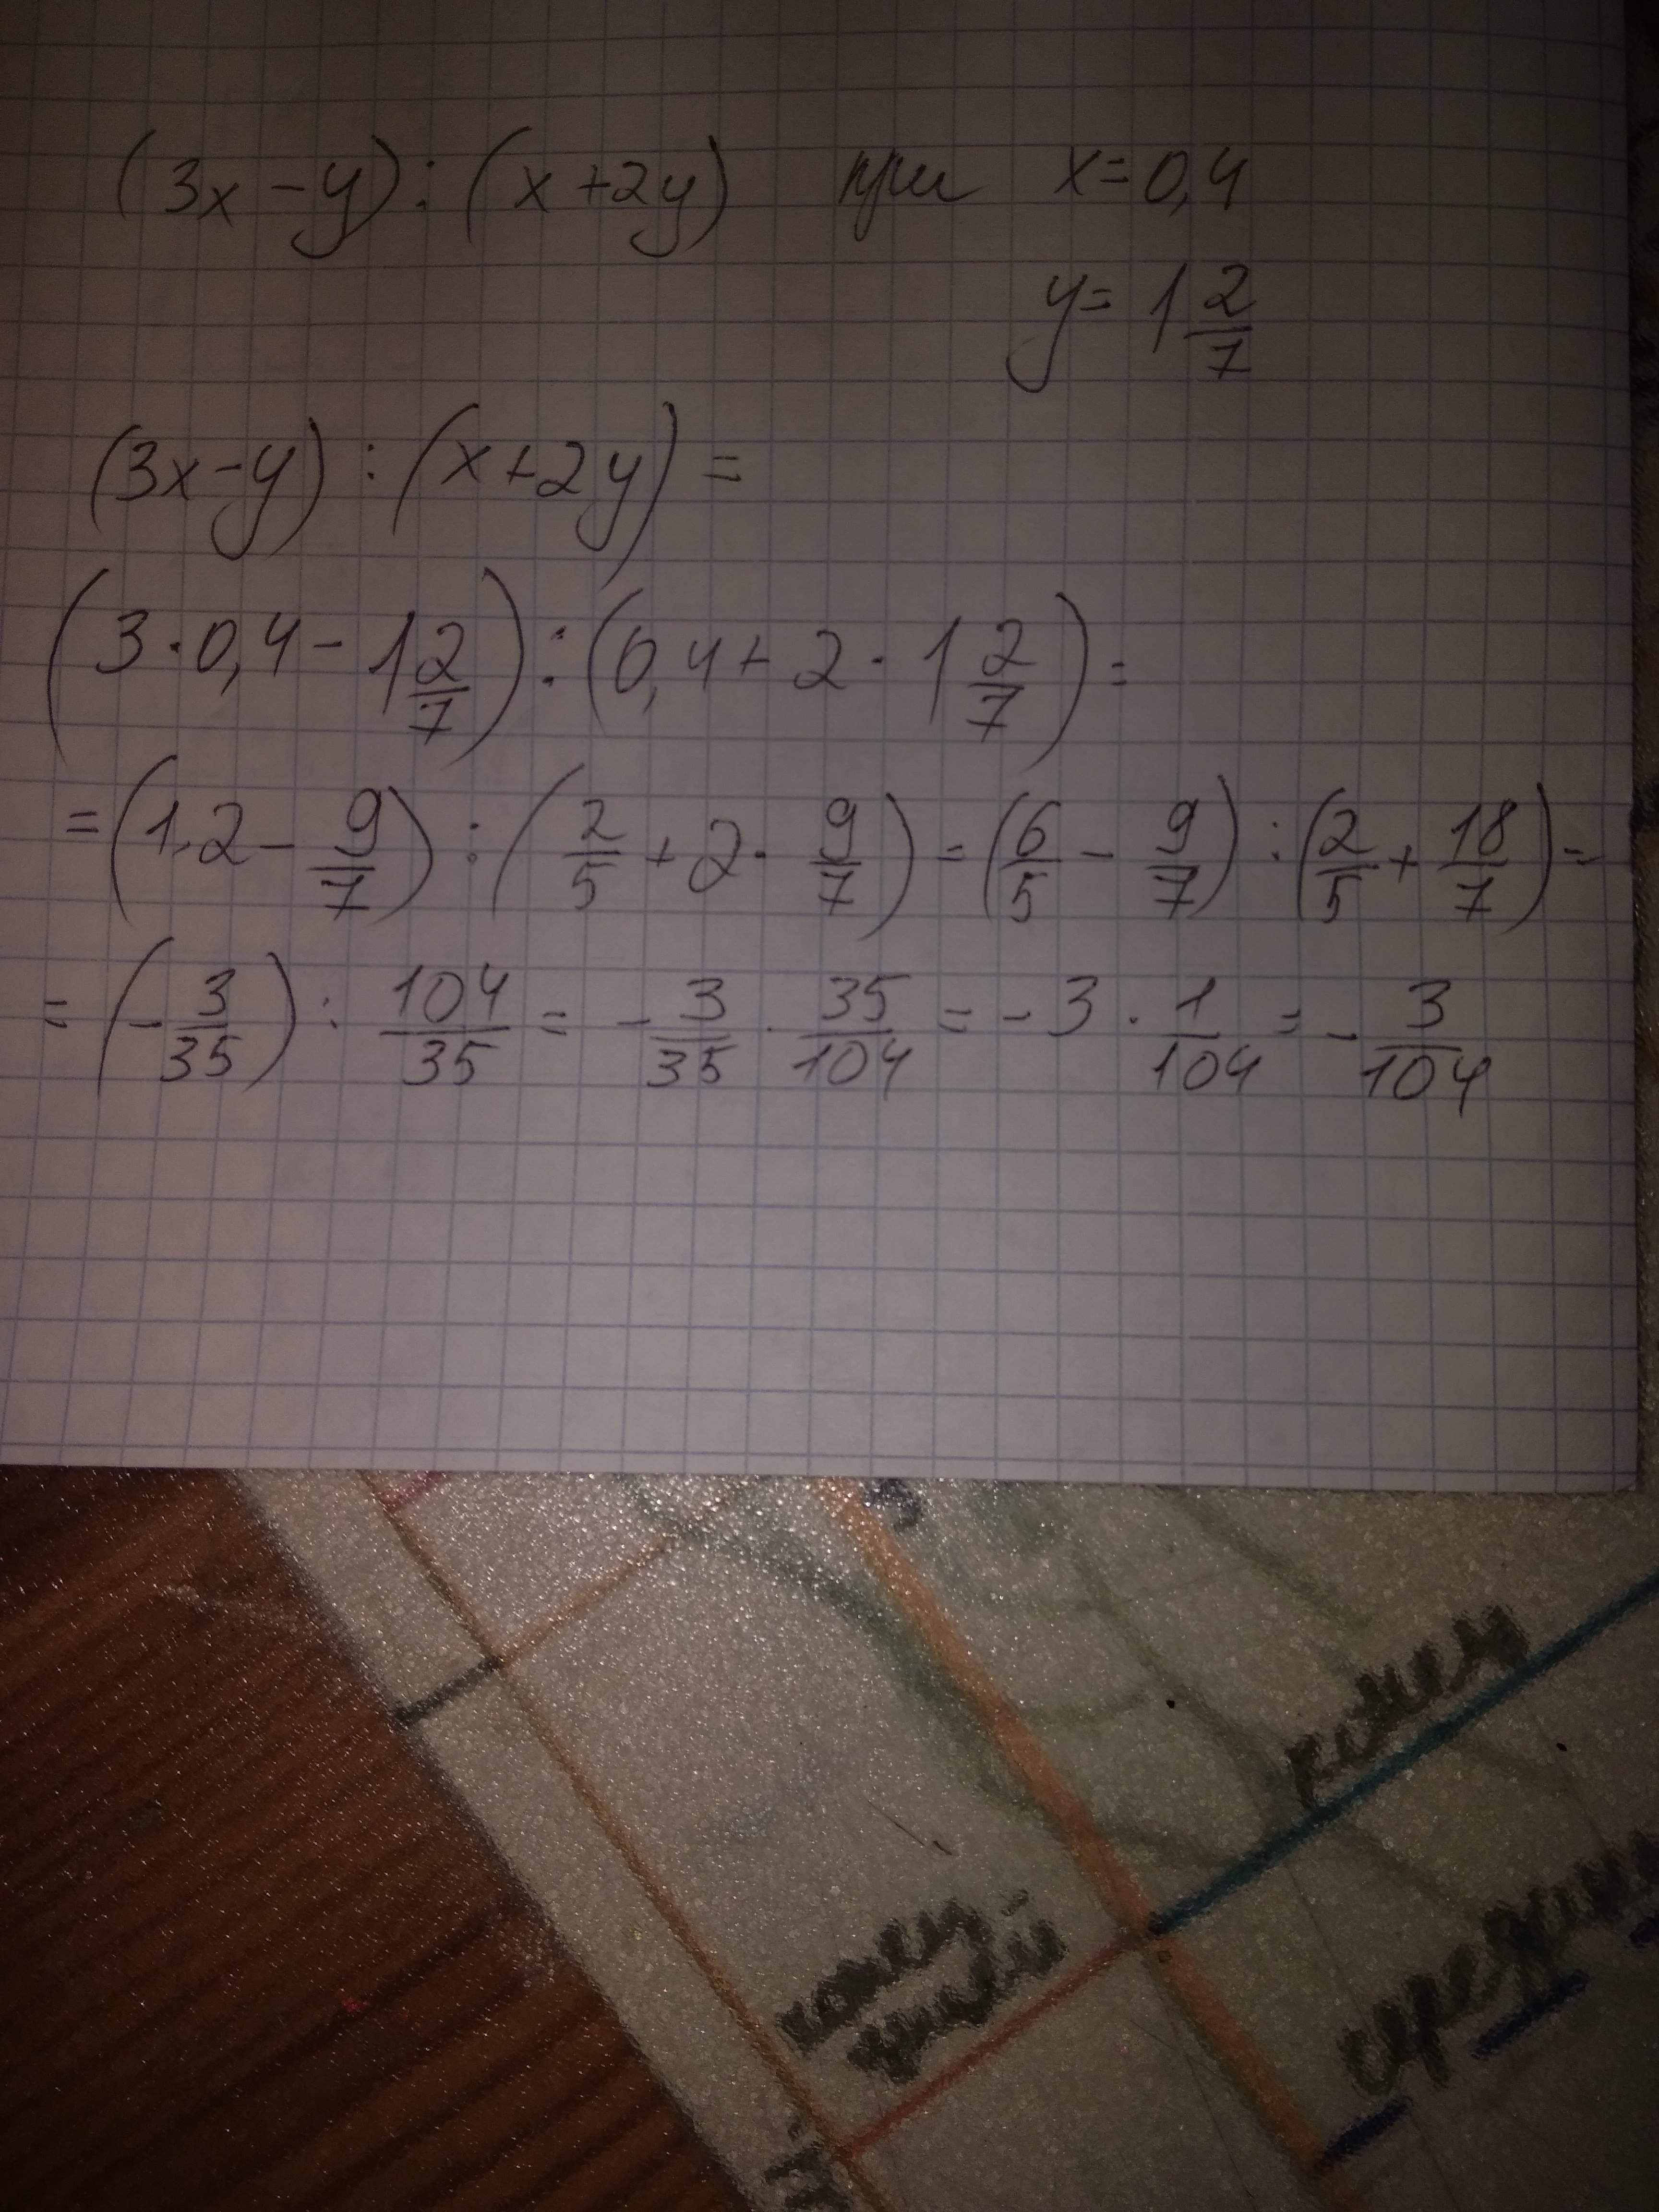 (3x-y):(x+2y) при x=0,4
y=1 2/7
(3x-y):(x+2y)=
(3·0,4-1 2/7):(0,4+2·1 2/7)=
=(1,2-9/7):(2/5+2·9/7)=(6/5-9/7):(2/5+18/7)=
=(-3/35):104/35=-3/35·35/104=-3·1/104=-3/104